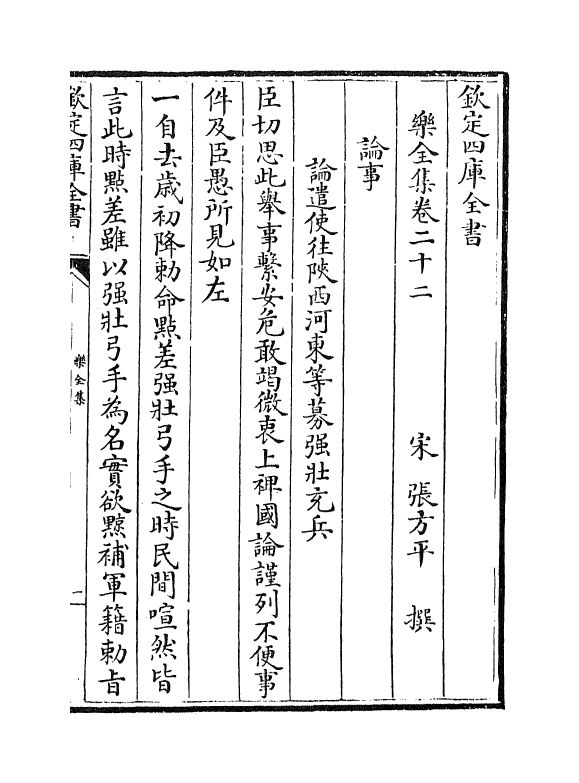 欽定四庫全書
樂全集卷二十二　宋　張方平　撰
論事
論遣使往陜西河東等募强壯充兵
臣切思此舉事繫安危敢竭微衷上裨國論謹列不便事
件及臣愚所見如左
一自去歳初降勅命㸃差强壯弓手之時民間喧然皆
言此時㸃差雖以强壯弓手為名實欲黥補軍籍勅㫖
欽定四庫全書
樂全集